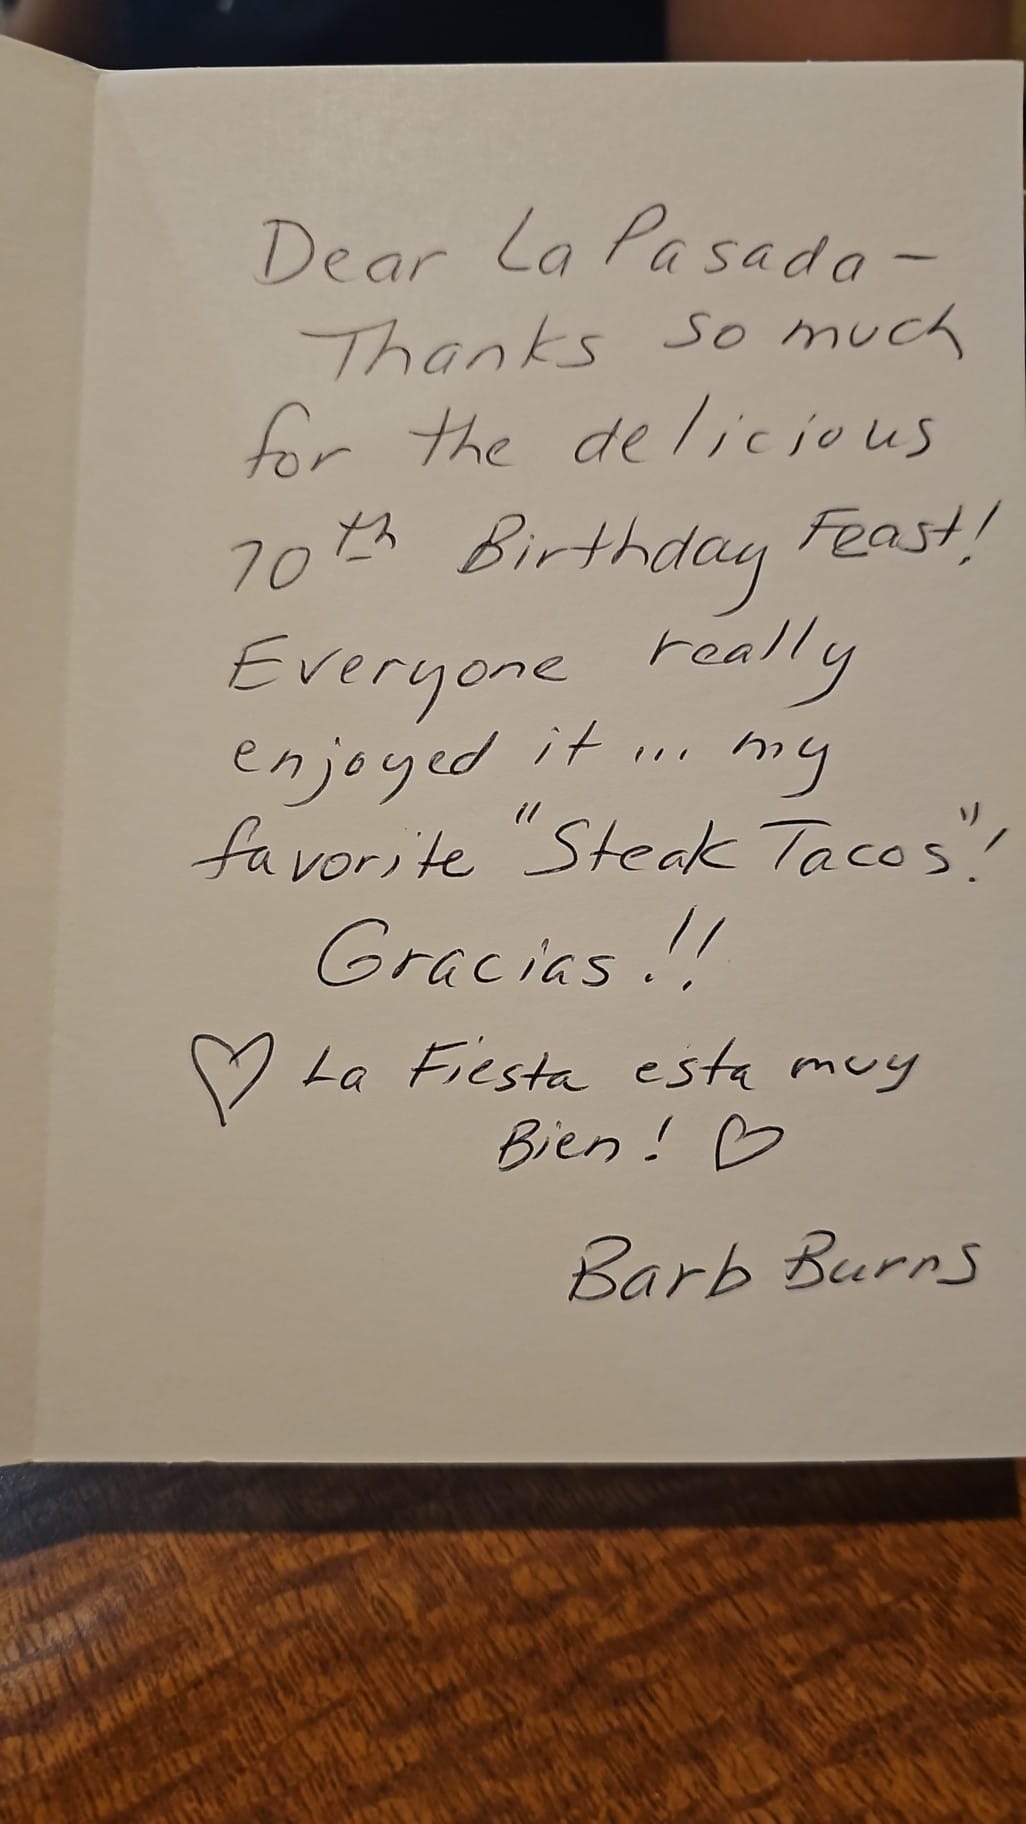 Dear La Pasada -
Thanks so much
for the delicious
70th Birthday Feast!
Everyone really
enjoyed it ... my
favorite "Steak Tacos"!
Gracias!!
♡ La Fiesta esta muy
Bien! ♡
Barb Burns